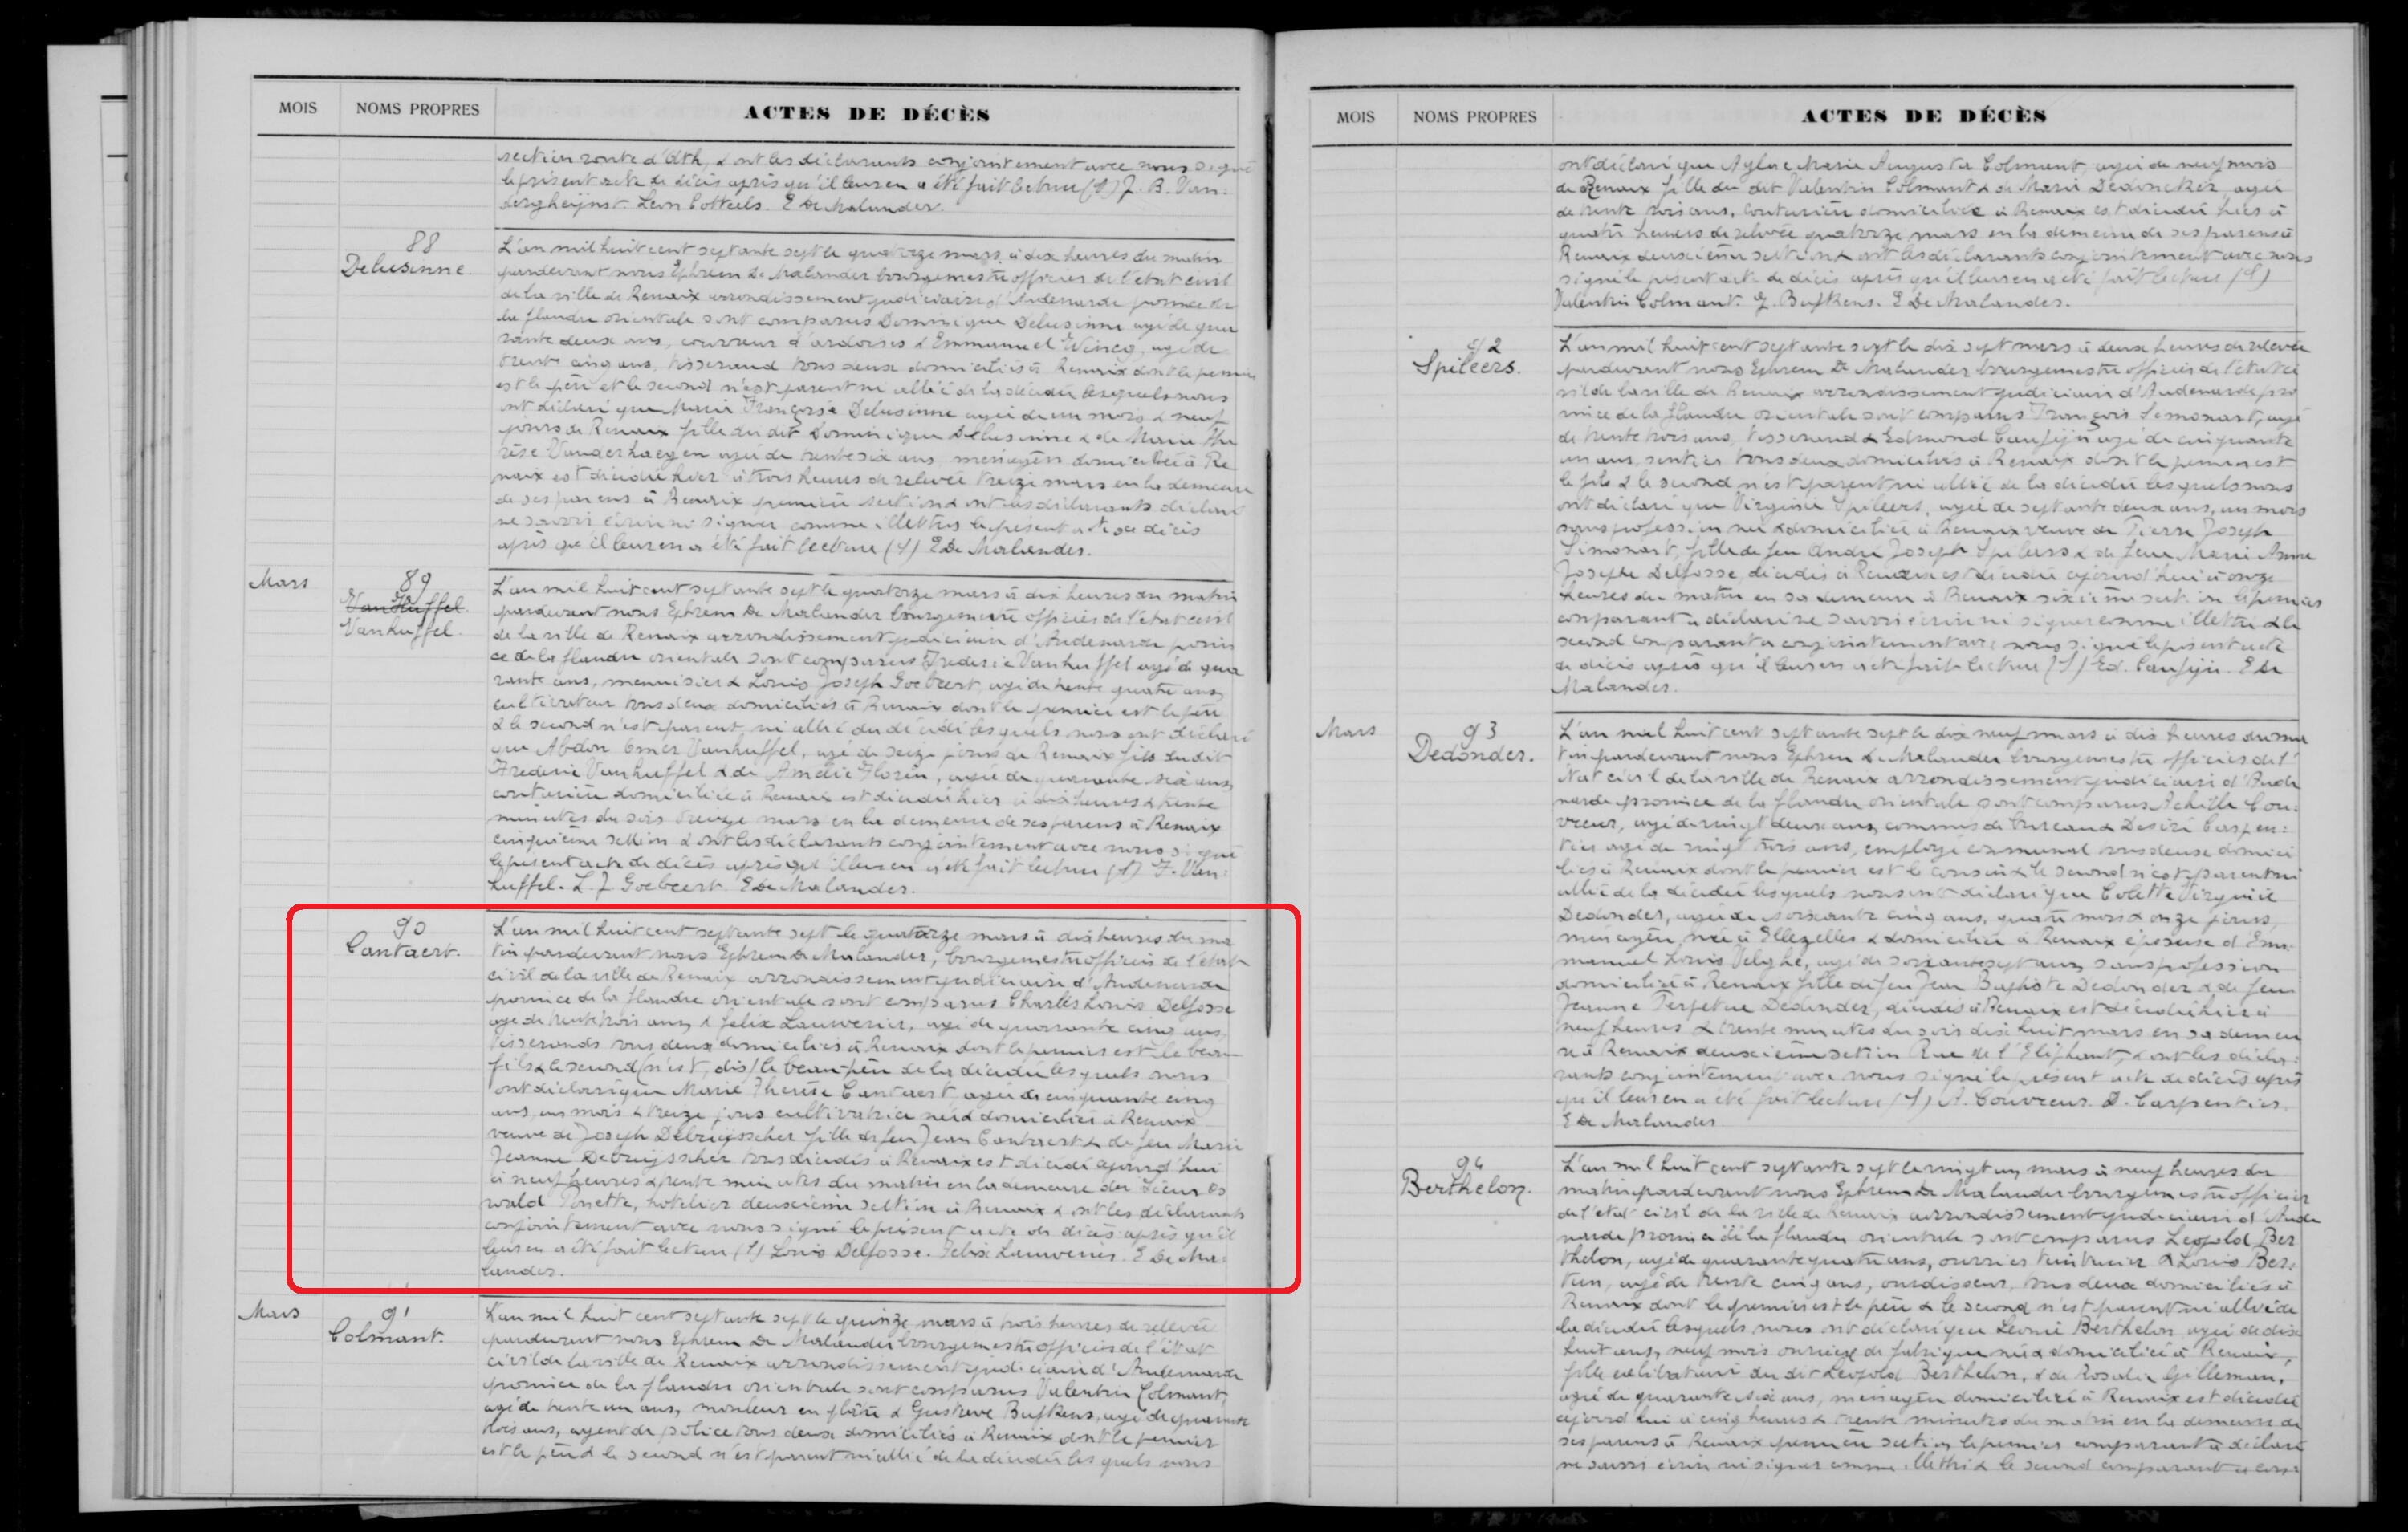 MOIS
NOMS PROPRES
ACTES DE DÉCÈS
section route d'Ath, & ont les déclarants conjointement avec nous signé
le présent acte de décès après qu'il leur en a été fait lecture (S) J. B. Van-
dergheijnst. Léon Cotteels. E De Malander.
88
Delusinne.
L'an mil huit cent septante sept le quatorze mars, à dix heures du matin
pardevant nous Ephrem De Malander bourgemestre officier de l'état civil
de la ville de Renaix arrondissement judiciaire d'Audenarde province de
la flandre orientale sont comparus Dominique Delusinne agé de qua
rante deux ans, couvreur d'ardoises & Emmanuel agé de
trente cinq ans, tisserand tous deux domiciliés à Renaix dont le premier
est le père et le second n'est parent ni allié de la décédée lesquels nous
ont déclaré que Marie Françoise Delusinne agée de un mois & neuf
jours de Renaix fille du dit Dominique Delusinne & de Marie Thé
rèse Vanderhaegen agée de trente six ans, ménagère domiciliée à Re
naix est décédée hier à trois heures de relevée treize mars en la demeure
de ses parens à Renaix première section & ont les déclarants déclaré
ne savoir écrire ni signer comme illettrés le présent acte de décès
après qu'il leur en a été fait lecture (S) E De Malander.
Mars
89
Vanhuffel.
Vanhuffel.
L'an mil huit cent septante sept le quatorze mars à dix heures du matin
pardevant nous Ephrem De Malander bourgemestre officier de l'état civil
de la ville de Renaix arrondissement judiciaire d'Audenarde provin
ce de la flandre orientale sont comparus Frederic Vanhuffel agé de qua
rante ans, menuisier & Louis Joseph Goebeert, agé de trente quatre ans,
cultivateur tous deux domiciliés à Renaix dont le premier est le père
& le second n'est parent ni allié du décédé lesquels nous ont déclaré
que Abdon Omer Vanhuffel, agé de seize jours de Renaix fils du dit
Frederic Vanhuffel & de Amélie Florin, agée de quarante six ans,
couturière domiciliée à Renaix est décédé hier à dix heures & trente
minutes du soir treize mars en la demeure de ses parens à Renaix
cinquième section & ont les déclarants conjointement avec nous signé
le présent acte de décès après qu'il leur en a été fait lecture (S) F. Van-
huffel. L. J. Goebeert. E De Malander.
90
Cantaert.
L'an mil huit cent septante sept le quatorze mars à dix heures du ma
tin pardevant nous Ephrem De Malander, bourgemestre officier de l'état
civil de la ville de Renaix arrondissement judiciaire d'Audenarde
province de la flandre orientale sont comparus Charles Louis Delfosse
agé de trente trois ans, & Felix Lauwerier, agé de quarante cinq ans,
tisserands tous deux domiciliés à Renaix dont le premier est le beau
fils & le second (n'est, dis) le beau-père de la décédée lesquels nous
ont déclaré que Marie Thérèse Cantaert, agée de cinquante cinq
ans, un mois & treize jours cultivatrice née & domiciliée à Renaix
veuve de Joseph Debruijsscher fille de feu Jean Cantaert & de feu Marie
Jeanne Debruijsscher tous décédés à Renaix est décédée aujourd'hui
à neuf heures & trente minutes du matin en la demeure du Sieur Os
wald Ponette, hotelier deuxième section à Renaix & ont les déclarants
conjointement avec nous signé le présent acte de décès après qu'il
leur en a été fait lecture (S) Louis Delfosse. Felix Lauwerier. E De Ma-
lander.
Mars
91
Colmant.
L'an mil huit cent septante sept le quinze mars à trois heures de relevée
pardevant nous Ephrem De Malander bourgemestre officier de l'état
civil de la ville de Renaix arrondissement judiciaire d'Audenarde
province de la flandre orientale sont comparus Valentin Colmant,
agé de trente un ans, mouleur en plâtre & Gustave Buftkens, agé de quarante
trois ans, agent de police tous deux domiciliés à Renaix dont le premier
est le père & le second n'est parent ni allié de la décédée lesquels nous
MOIS
NOMS PROPRES
ACTES DE DÉCÈS
ont déclaré que Aglae Marie Augusta Colmant, agée de neuf mois
de Renaix fille du dit Valentin Colmant & de Marie Dedoncker, agée
de trente trois ans, couturière domiciliée à Renaix est décédée hier à
quatre heures de relevée quatorze mars en la demeure de ses parens à
Renaix deuxième section & ont les déclarants conjointement avec nous
signé le présent acte de décès après qu'il leur en a été fait lecture (S)
Valentin Colmant. G. Buftkens. E De Malander.
92
Spileers.
L'an mil huit cent septante sept le dix sept mars à deux heures de relevée
pardevant nous Ephrem De Malander bourgemestre officier de l'état ci
vil de la ville de Renaix arrondissement judiciaire d'Audenarde pro
vince de la flandre orientale sont comparus François Simonart, agé
de trente trois ans, tisserand & Edmond Caufijn agé de cinquante
un ans, rentier tous deux domiciliés à Renaix dont le premier est
le fils & le second n'est parent ni allié de la décédée lesquels nous
ont déclaré que Virginie Spileers, agée de septante deux ans, un mois
sans profession née & domiciliée à Renaix veuve de Pierre Joseph
Simonart, fille de feu André Joseph Spileers & de feue Marie Anne
Josephe Delfosse, décédés à Renaix est décédée aujourd'hui à onze
heures du matin en sa demeure à Renaix sixième section le premier
comparant a déclaré ne savoir écrire ni signer comme illettré & le
second comparant a conjointement avec nous signé le présent acte
de décès après qu'il leur en a été fait lecture (S) Ed. Caufijn. E De
Malander.
Mars
93
Dedonder.
L'an mil huit cent septante sept le dix neuf mars à dix heures du ma
tin pardevant nous Ephrem De Malander bourgemestre officier de l'
état civil de la ville de Renaix arrondissement judiciaire d'Aude
narde province de la flandre orientale sont comparus Achille Cou-
vreur, agé de vingt deux ans, commis de bureau & Desiré Carpen-
tier agé de vingt trois ans, employé communal tous deux domici
liés à Renaix dont le premier est le cousin & le second n'est parent ni
allié de la décédée lesquels nous ont déclaré que Colette Virginie
Dedonder, agée de soixante cinq ans, quatre mois & onze jours,
ménagère, née à Ellezelles & domiciliée à Renaix épouse d'Em-
manuel Louis Velghe, agé de soixante sept ans, sans profession
domicilié à Renaix fille de feu Jean Baptiste Dedonder & de feue
Jeanne Perpetue Dedonder, décédés à Renaix est décédée hier à
neuf heures & trente minutes du soir dix huit mars en sa demeu
re à Renaix deuxième section Rue de l'Eléphant, & ont les décla-
rants conjointement avec nous signé le présent acte de décès après
qu'il leur en a été fait lecture (S) A. Couvreur. D. Carpentier.
E De Malander.
94
Berthelon.
L'an mil huit cent septante sept le vingt un mars à neuf heures du
matin pardevant nous Ephrem De Malander bourgemestre officier
de l'état civil de la ville de Renaix arrondissement judiciaire d'Aude
narde province de la flandre orientale sont comparus Léopold Ber
thelon, agé de quarante quatre ans, ouvrier teinturier & Louis
agé de trente cinq ans, ourdisseur, tous deux domiciliés à
Renaix dont le premier est le père & le second n'est parent ni allié de
la décédée lesquels nous ont déclaré que Léonie Berthelon agée de dix
huit ans, neuf mois ouvrière de fabrique née & domiciliée à Renaix,
fille célibataire du dit Léopold Berthelon, & de Rosalie Gilleman,
agée de quarante six ans, ménagère domiciliée à Renaix est décédée
aujourd'hui à cinq heures & trente minutes du matin en la demeure de
ses parens à Renaix première section le premier comparant a déclaré
ne savoir écrire ni signer comme illettré & le second comparant a conj